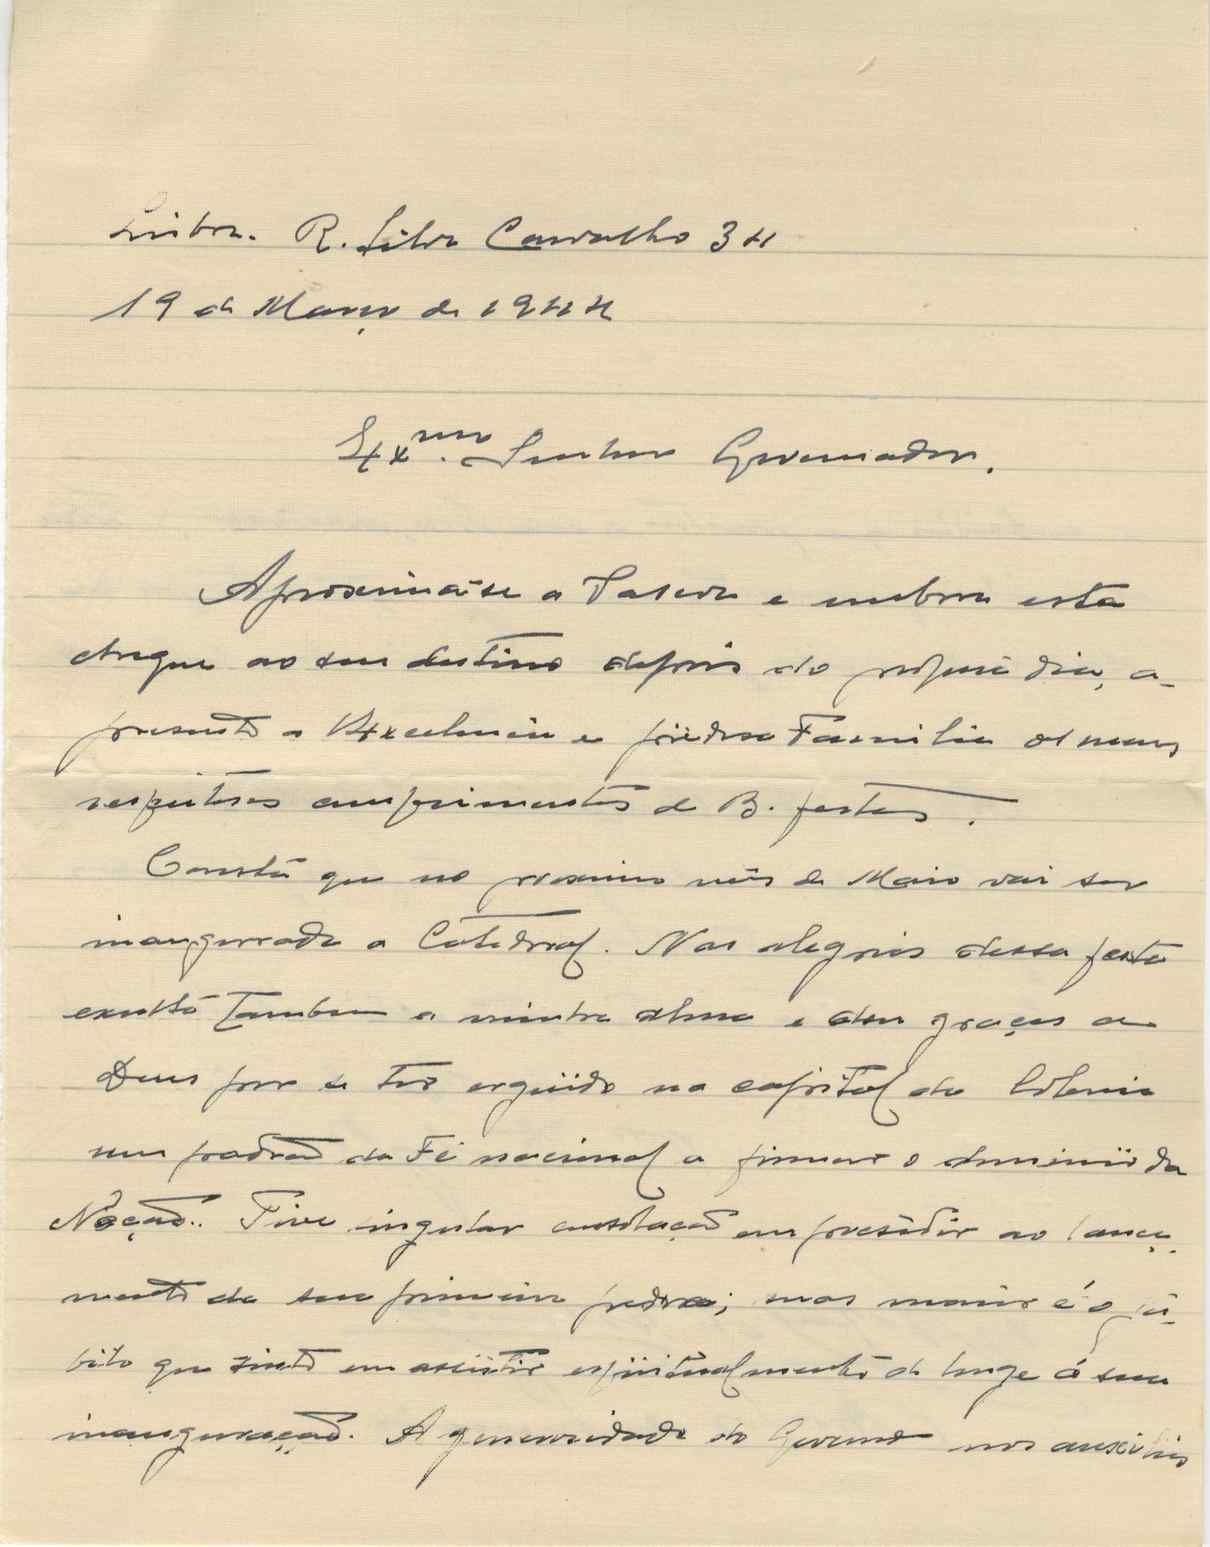 Lisboa. R. Silva Carvalho 34
19 de Março de 1944
Exmo. Senhor Governador.
Aproxima-se a Pascoa e embora esta
chegue ao seu destino depois do proprio dia, a-
presento a V Excelencia e piedosa Familia os meus
respeitosos cumprimentos de B. festas.
Consta que no proximo mês de Maio vai ser
inaugurada a Catedral. Nas alegrias dessa festa
exulta tambem a minha alma e dou graças a
Deus por se ter erguido na capital da Colonia
um padrão da Fé nacional a firmar o dominio da
Nação. Tive singular consolação em presidir ao lança-
mento da sua primeira pedra; mas maior é o jú-
bilo que sinto em assistir espiritualmente de longe á sua
inauguração. A generosidade do Governo nos auxilios